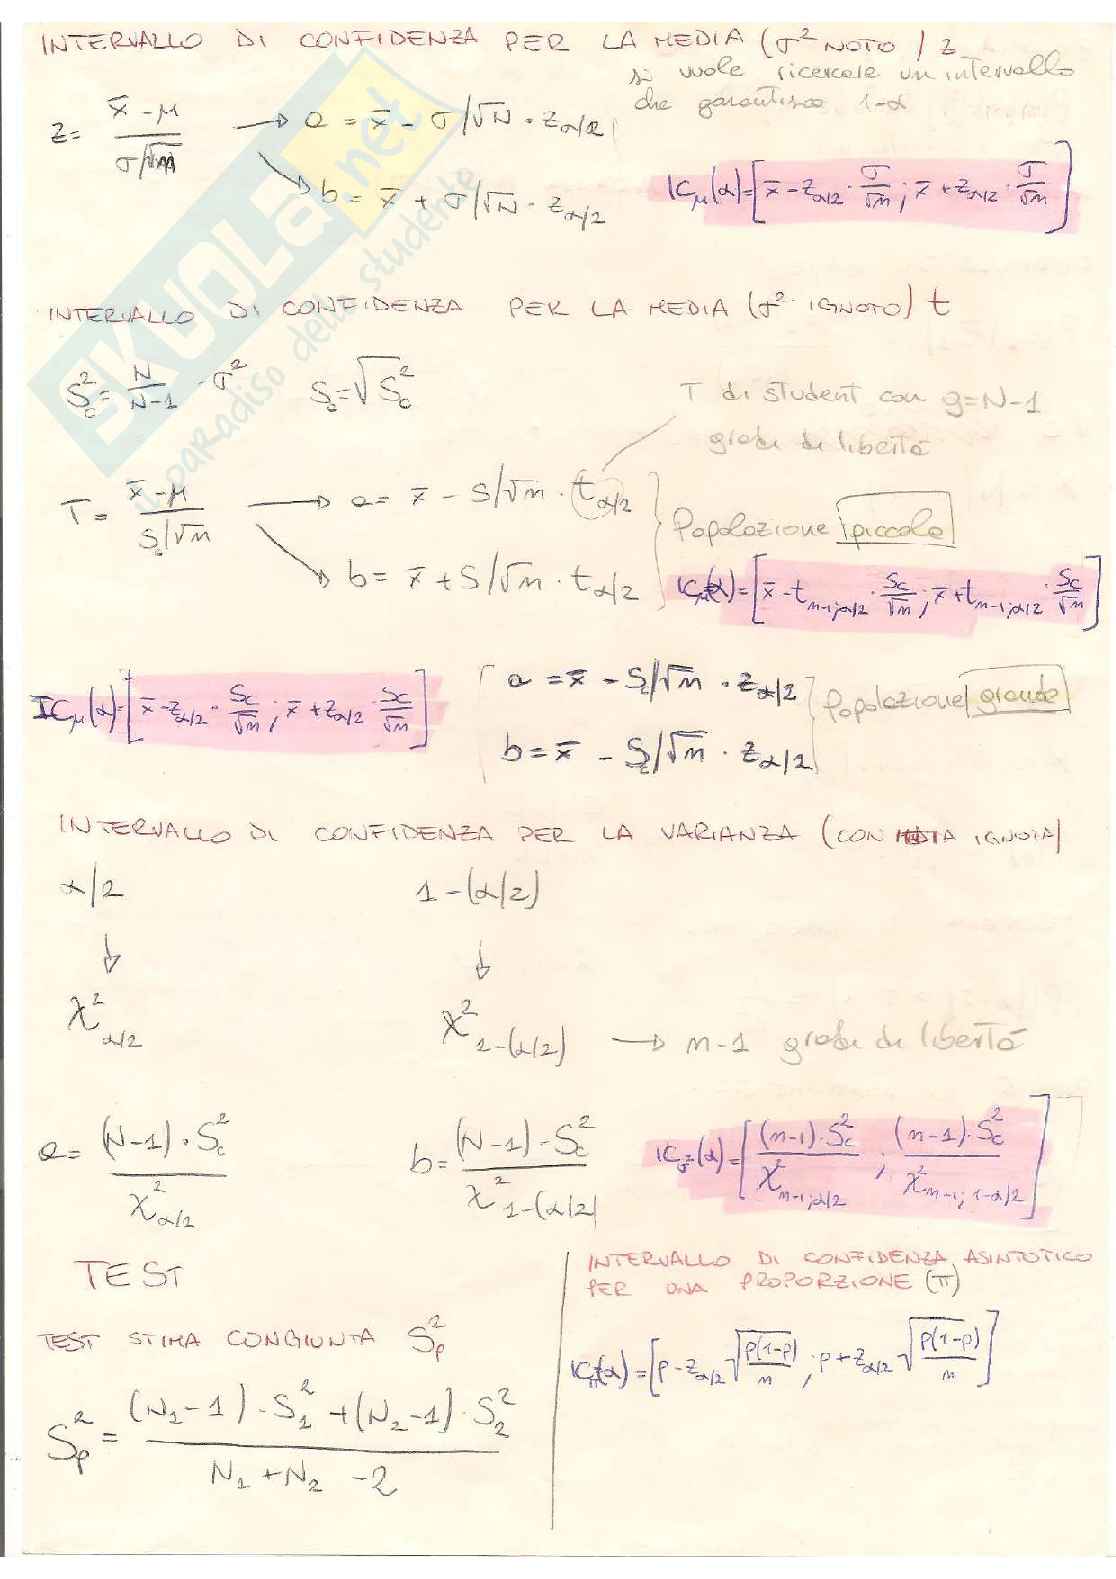 INTERVALLO DI CONFIDENZA PER LA MEDIA (σ² NOTO) z
si vuole ricercare un intervallo
che garantisca 1-α
z = (x̄ - μ) / (σ/√n) → a = x̄ - σ/√N · z_{α/2}
b = x̄ + σ/√N · z_{α/2}
IC_μ(α) = [x̄ - z_{α/2} · σ/√n ; x̄ + z_{α/2} · σ/√n]
INTERVALLO DI CONFIDENZA PER LA MEDIA (σ² IGNOTO) t
S_c² = N/(N-1) · σ² S_c = √S_c²
T di student con g=N-1
gradi di libertà
T = (x̄ - μ) / (S_c/√n) → a = x̄ - S/√n · t_{α/2}
b = x̄ + S/√n · t_{α/2}
Popolazione piccola
IC_μ(α) = [x̄ - t_{n-1;α/2} · S_c/√n ; x̄ + t_{n-1;α/2} · S_c/√n]
a = x̄ - S_c/√n · z_{α/2}
b = x̄ - S_c/√n · z_{α/2}
Popolazione grande
IC_μ(α) = [x̄ - z_{α/2} · S_c/√n ; x̄ + z_{α/2} · S_c/√n]
INTERVALLO DI CONFIDENZA PER LA VARIANZA (CON IGNOTA)
α/2 1-(α/2)
↓ ↓
χ²_{α/2} χ²_{1-(α/2)} → n-1 gradi di libertà
a = (N-1) · S_c² / χ²_{α/2} b = (N-1) · S_c² / χ²_{1-(α/2)}
IC_{σ²}(α) = [(n-1) · S_c² / χ²_{n-1;α/2} ; (n-1) · S_c² / χ²_{n-1;1-α/2}]
TEST
TEST STIMA CONGIUNTA S_p²
S_p² = ((N₁-1) · S₁² + (N₂-1) · S₂²) / (N₁+N₂-2)
INTERVALLO DI CONFIDENZA ASINTOTICO
PER UNA PROPORZIONE (π)
IC_π(α) = [p - z_{α/2} √(p(1-p)/n) ; p + z_{α/2} √(p(1-p)/n)]
SKUOLA.net
il paradiso dello studente